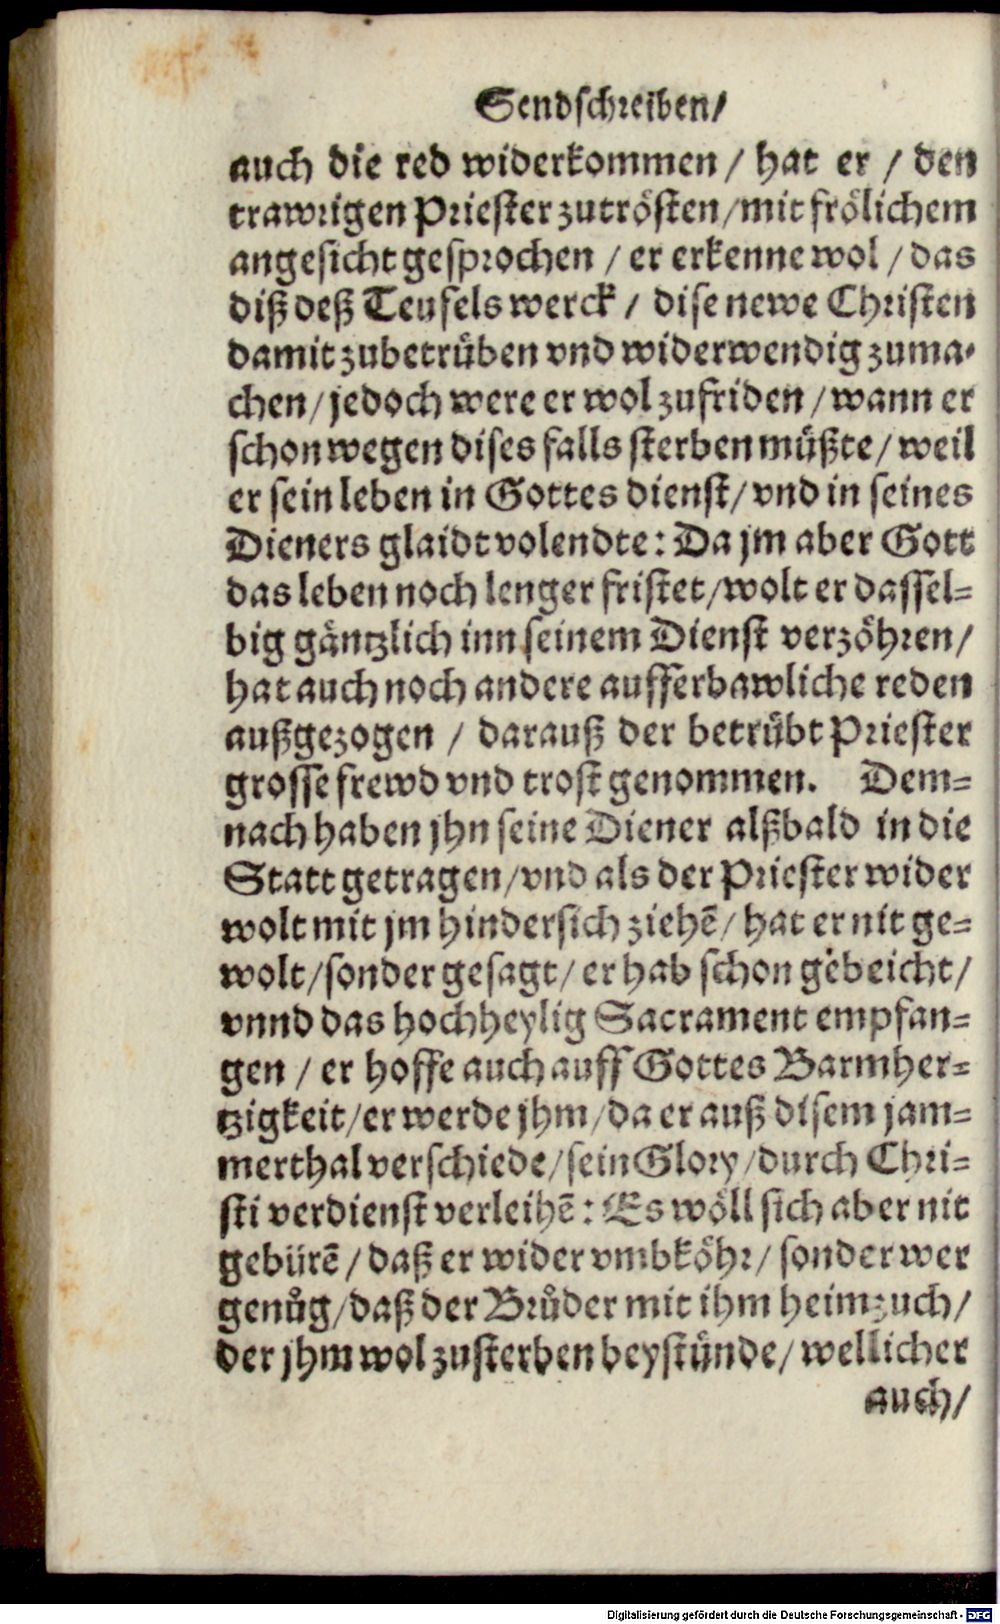 Sendschreiben/
auch die red widerkommen / hat er / den
trawrigen Priester zutrösten/mit frölichem
angesicht gesprochen / er erkenne wol / das
diß deß Teufels werck / dise newe Christen
damit zubetrüben vnd widerwendig zuma-
chen/jedoch were er wol zufriden/wann er
schon wegen dises falls sterben müßte/weil
er sein leben in Gottes dienst/vnd in seines
Dieners glaidt volendte: Da jm aber Gott
das leben noch lenger fristet/wolt er dassel=
big gäntzlich inn seinem Dienst verzöhren/
hat auch noch andere aufferbawliche reden
außgezogen / darauß der betrübt Priester
grosse frewd vnd trost genommen. Dem=
nach haben jhn seine Diener alßbald in die
Statt getragen/vnd als der Priester wider
wolt mit jm hindersich ziehē/hat er nit ge=
wolt/sonder gesagt/er hab schon gebeicht/
vnnd das hochheylig Sacrament empfan=
gen / er hoffe auch auff Gottes Barmher=
tzigkeit/er werde jhm/da er auß disem jam=
merthal verschiede/sein Glory/durch Chri=
sti verdienst verleihē: Es wöll sich aber nit
gebürē/daß er wider vmbköhr/sonder wer
genůg/daß der Brůder mit ihm heimzuch/
der jhm wol zusterben beystünde/wellicher
auch/
Digitalisierung gefördert durch die Deutsche Forschungsgemeinschaft - DFG